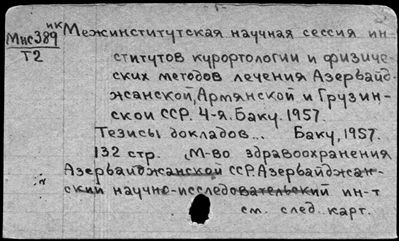 ик
Мнс389 Межинститутская научная сессия ин-
Т2 ститутов курортологии и физиче-
ских методов лечения Азербайд-
жанской, Армянской и Грузин-
ской ССР. 4-я. Баку. 1957.
Тезисы докладов... Баку, 1957.
132 стр. М-во здравоохранения
Азербайджанской ССР. Азербайджан-
ский научно-исследовательский ин-т
см. след. карт.